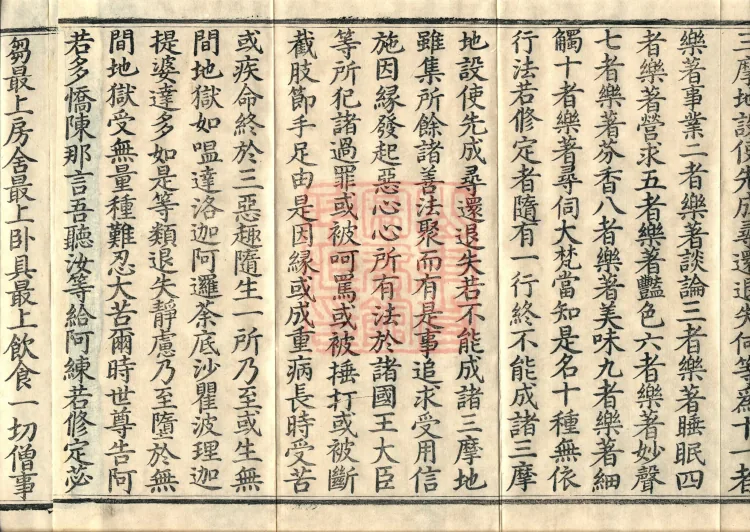 三摩地設使先成尋還退失何等為十一者
樂著事業二者樂著談論三者樂著睡眠四
者樂著營求五者樂著豔色六者樂著妙聲
七者樂著芬香八者樂著美味九者樂著細
觸十者樂著尋伺大梵當知是名十種無依
行法若修定者隨有一行終不能成諸三摩
地設使先成尋還退失若不能成諸三摩地
雖集所餘諸善法聚而有是事追求受用信
施因緣發起惡心心所有法於諸國王大臣
等所犯諸過罪或被呵罵或被捶打或被斷
截肢節手足由是因緣或成重病長時受苦
或疾命終於三惡趣隨生一所乃至或生無
間地獄如嗢達洛迦阿邏荼底沙瞿波理迦
提婆達多如是等類退失靜慮乃至墮於無
間地獄受無量種難忍大苦爾時世尊告阿
若多憍陳那言吾聽汝等給阿練若修定苾
芻最上房舍最上臥具最上飲食一切僧事